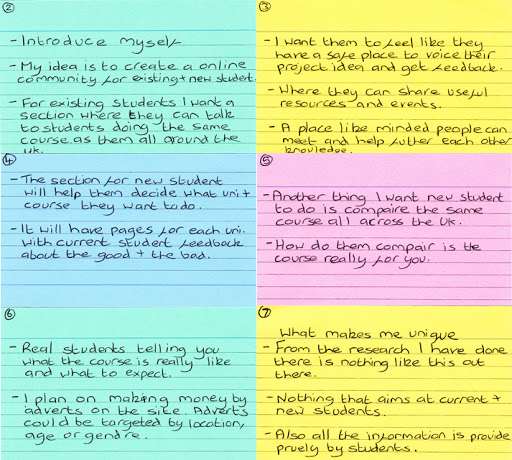 ②
- Introduce myself
- My idea is to create a online
community for existing + new student.
- For existing students I want a
section where they can talk
to students doing the same
course as them all around the
UK.
③
- I want them to feel like they
have a safe place to voice their
project idea and get feedback.
- Where they can share useful
resources and events.
- A place like minded people can
meet and help futher each other
knowledge.
④
- The section for new student
will help them decide what uni +
course they want to do.
- It will have pages for each uni.
with current student feedback
about the good + the bad.
⑤
- Another thing I want new student
to do is compaire the same
course all across the UK.
- How do them compair is the
course really for you.
⑥
- Real students telling you
what the course is really like
and what to expect.
- I plan on making money by
adverts on the site. Adverts
could be targeted by location,
age or gendre.
⑦
What makes me unique
- From the research I have done
there is nothing like this out
there.
- Nothing that aims at current +
new students.
- Also all the information is provide
pruely by students.